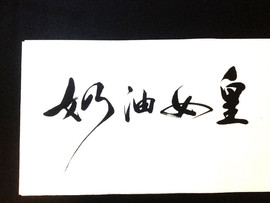 奶油女皇